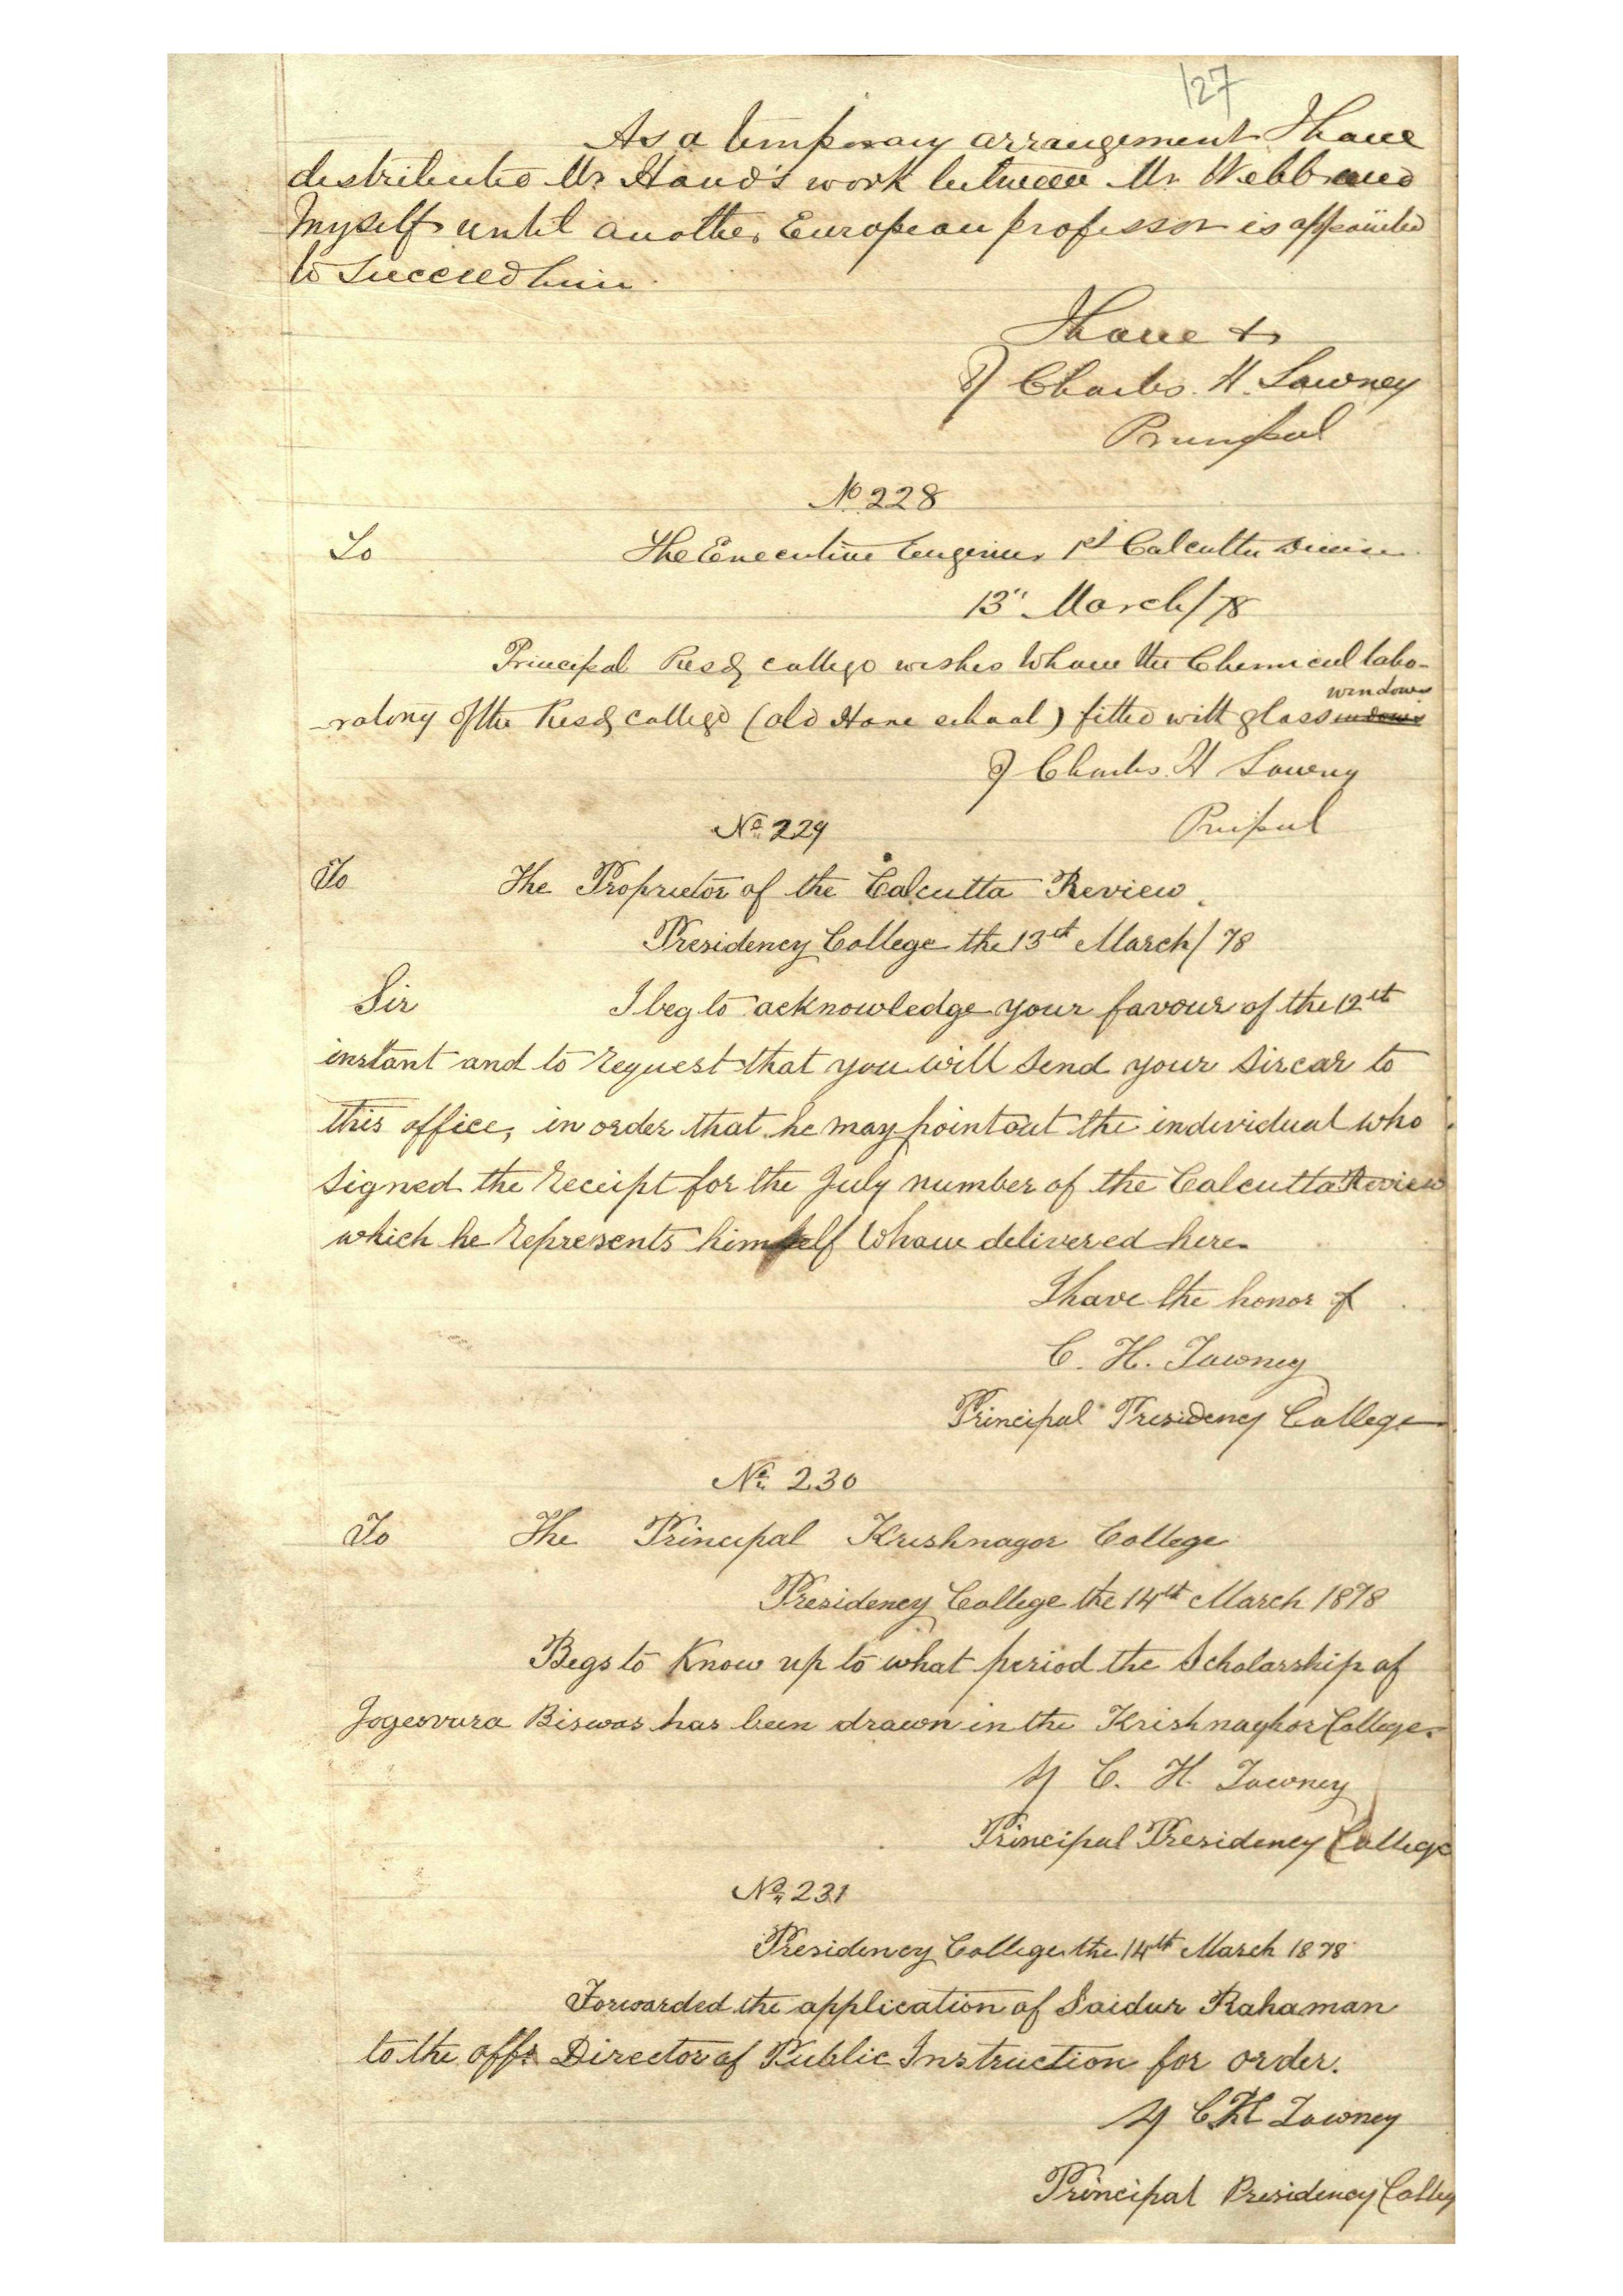 127
As a temporary arrangement I have
distributed Mr Hand's work between Mr Webb and
Myself until another European professor is appointed
to succeed him
I have &
Charles. H. Tawney
Principal
No 228
To The Executive Engineer 1st Calcutta Division
13" March/78
Principal Presdy college wishes to have the Chemical labo-
-ratory of the Presdy college (old Hare school) fitted with glass windows
Charles. H Tawney
No 229 Principal
To The Proprietor of the Calcutta Review.
Presidency College the 13th March/78
Sir I beg to acknowledge your favour of the 12th
instant and to request that you will send your Sircar to
this office, in order that he may point out the individual who
signed the receipt for the July number of the Calcutta Review
which he represents himself to have delivered here.
I have the honor &
C. H. Tawney
Principal Presidency College
No. 230
To The Principal Krishnagor College
Presidency College the 14th March 1878
Begs to Know up to what period the Scholarship of
Jogesvura Biswas has been drawn in the Krishnaghor College.
C. H. Tawney
Principal Presidency College
No. 231
Presidency College the 14th March 1878
Forwarded the application of Saidur Rahaman
to the offg Director of Public Instruction for order.
CH Tawney
Principal Presidency Colleg